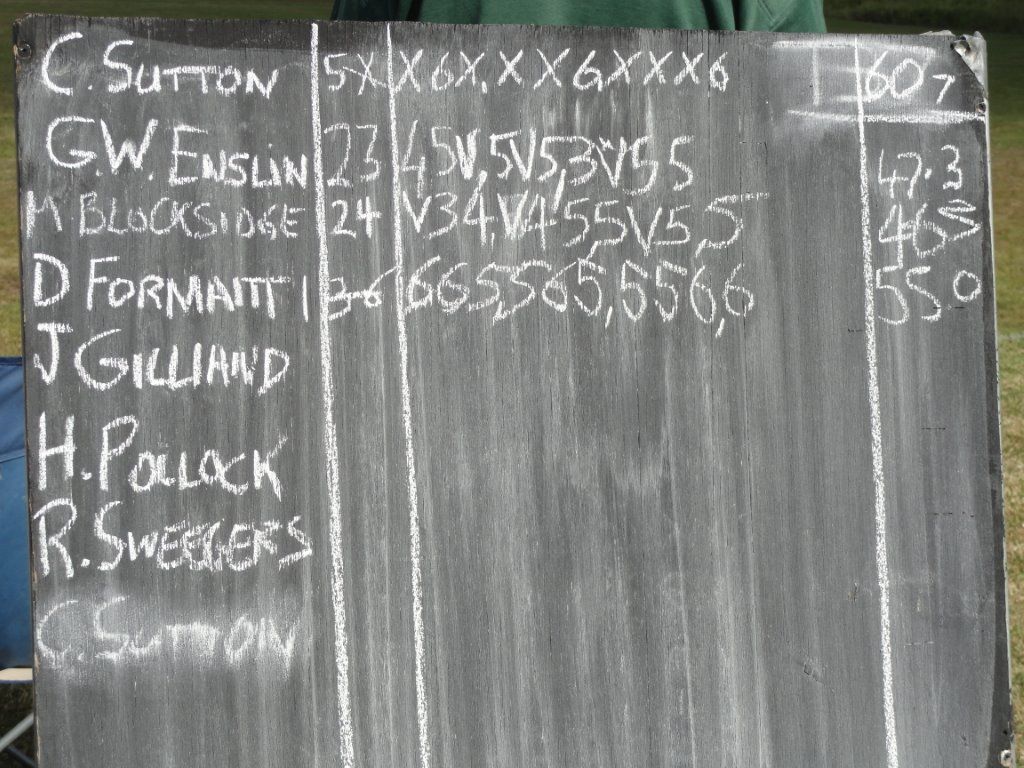 C. SUTTON 5X X6X,XX6XXX6 60 7
G.W. ENSLIN 23 45V,5V5,3VV55 47.3
M BLOCKSIDGE 24 V34,V4,55V5,5 46
D FORMATTI 36 6655,565,6556,6 55.0
J GILLIAND
H. POLLOCK
R. SWEEGERS
C. SUTTON